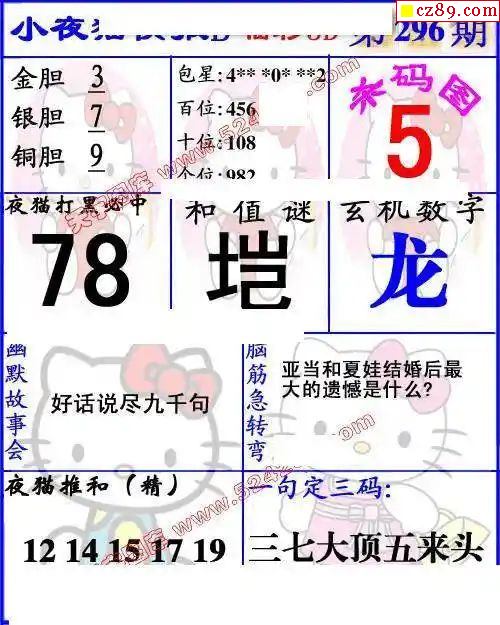 cz89.com
小夜猫
第296期
金胆 3
银胆 7
铜胆 9
包星:4** *0* **2
百位:456
十位:108
个位:982
来码图
5
夜猫打黑必中
78
和值谜
垲
玄机数字
龙
幽默故事会
好话说尽九千句
脑筋急转弯
亚当和夏娃结婚后最
大的遗憾是什么?
夜猫推和(精)
12 14 15 17 19
一句定三码:
三七大顶五来头